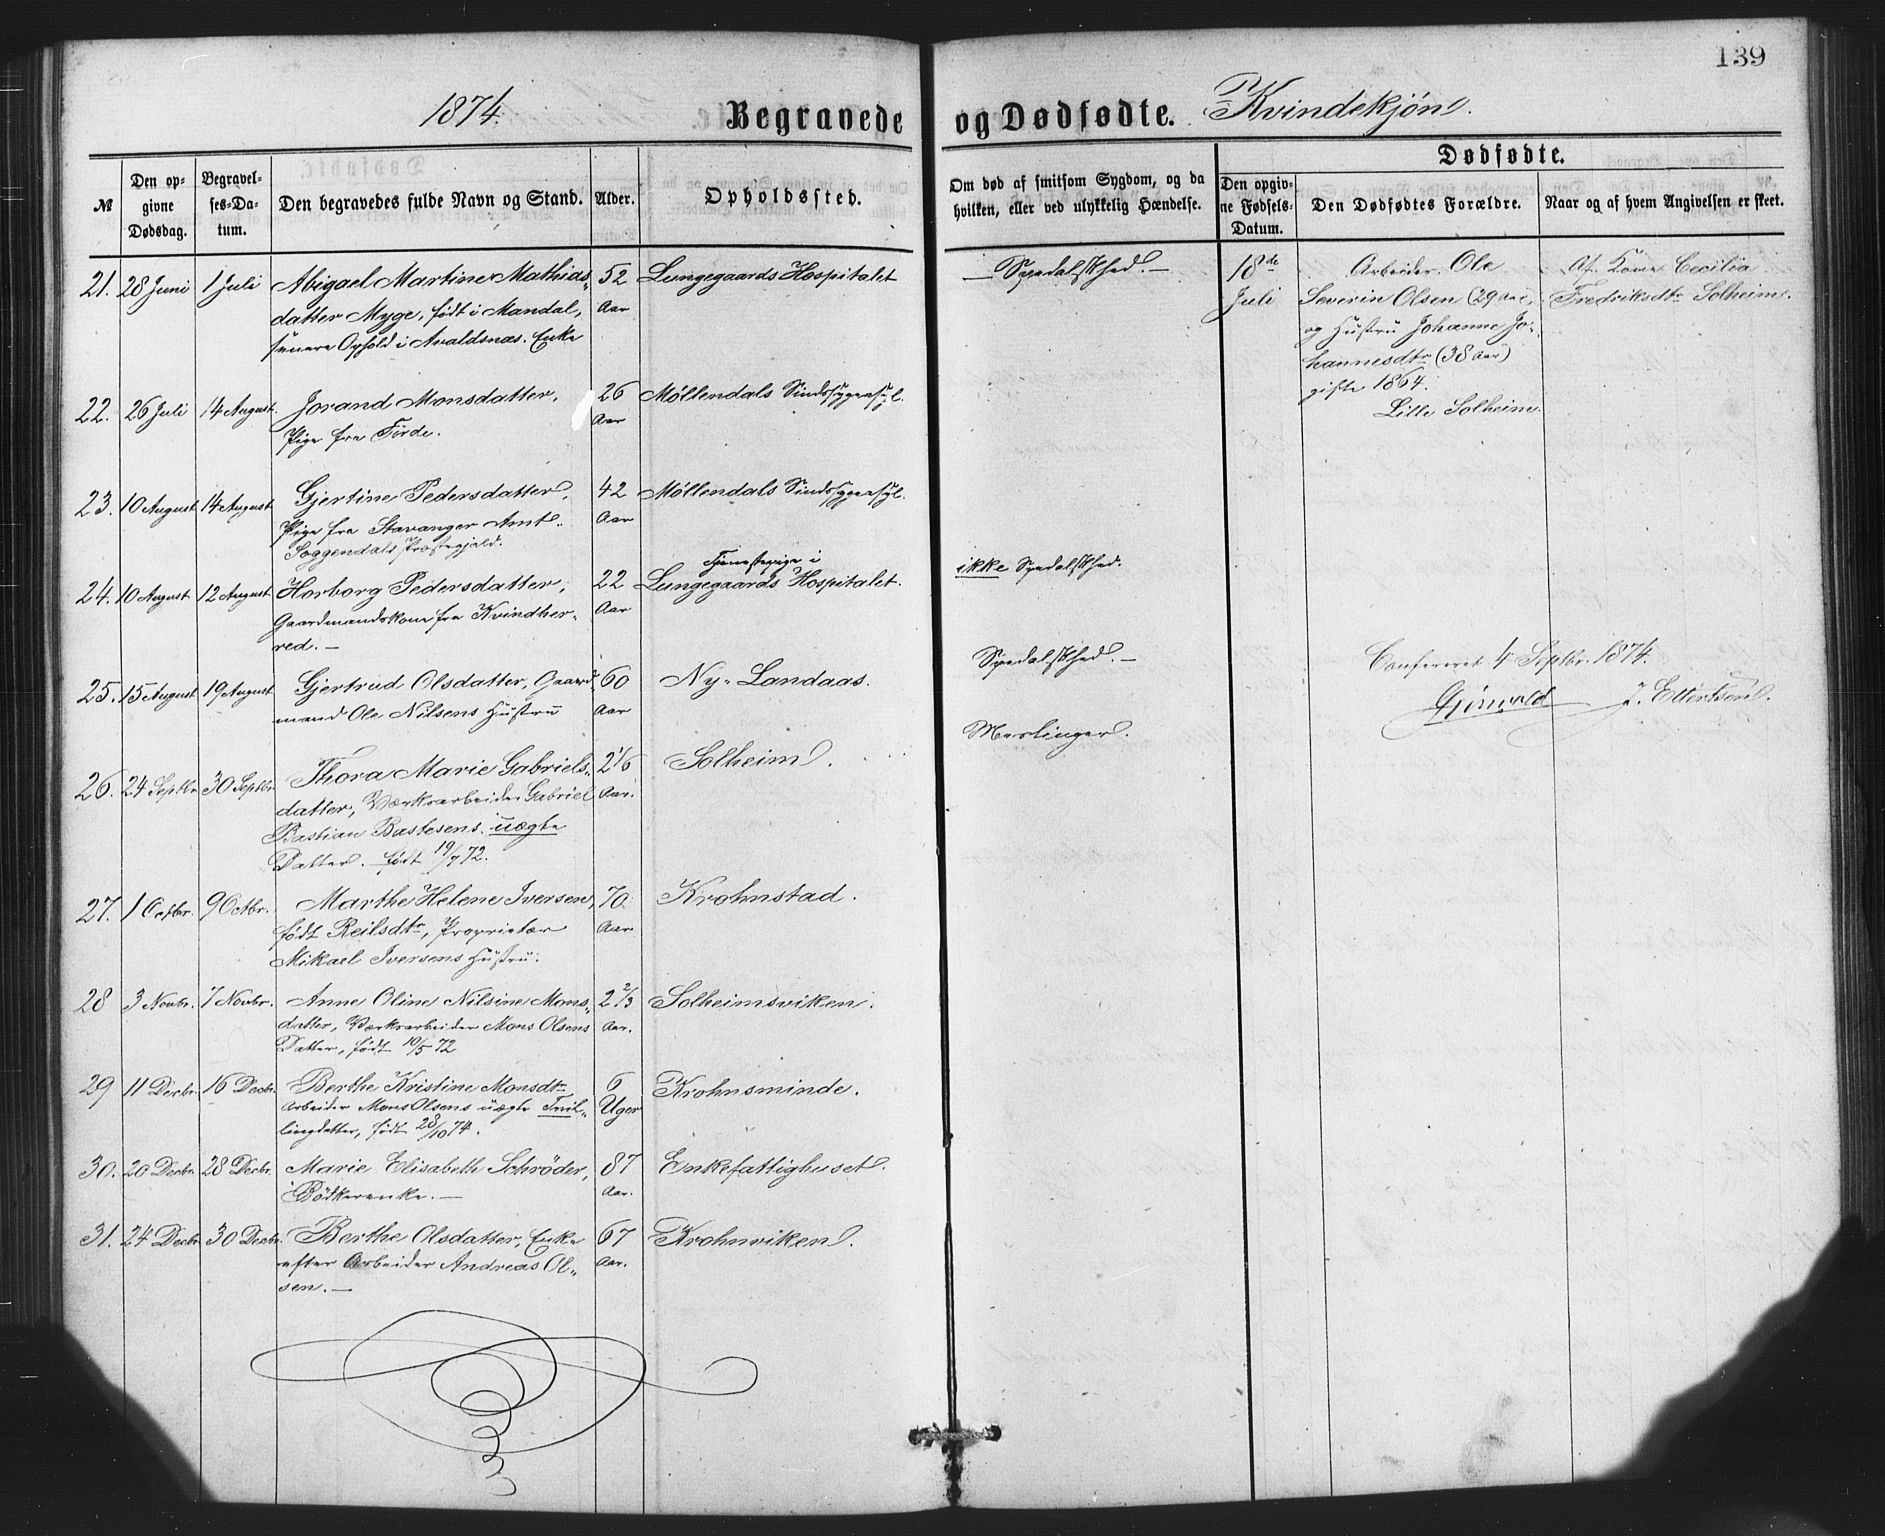 139
1874.
Begravede og Dødfødte. Kvindekjøn.
№
Den opgivne Dødsdag.
Begravelses-Datum.
Den begravedes fulde Navn og Stand.
Alder.
Opholdssted.
Om død af smitsom Sygdom, og da hvilken, eller ved ulykkelig Hændelse.
Dødfødte.
Den opgivne Fødsels-Datum.
Den Dødfødtes Forældre.
Naar og af hvem Angivelsen er skeet.
21. 28 Juni 1 Juli Abigael Martine Mathias- 52 Lungegaards Hospitalet — Spedalskhed. —
datter Myge, født i Mandal, Aar
senere Ophold i Avaldsnæs. Enke
18de Arbeider Ole Af Kone Cecilia
Juli Severin Olsen (29 Aar), Fredriksdtr Solheim.
og Hustru Johanne Jo-
hannesdtr (38 Aar)
gifte 1864.
Lille Solheim.
22. 26 Juli 14 August Jorand Monsdatter, 26 Møllendals Sindssygeasyl.
Pige fra Førde. Aar
23. 10 August 14 August Gjertine Pedersdatter, 42 Møllendals Sindssygeasyl.
Pige fra Stavanger Amt. Aar
Soggendals Præstegjæld.
24. 10 August 12 August Horborg Pedersdatter, 22 Tjenestepige i
Lungegaards Hospitalet. ikke Spedalskhed.
Gaardmandskone fra Kvindher- Aar
red. —
25. 15 August 19 August Gjertrud Olsdatter, Gaard- 60 Ny-Landaas. Spedalskhed. —
mand Ole Nilsens Hustru Aar
Confereret 4 Septbr. 1874.
26. 24 Septbr 30 Septbr. Thora Marie Gabriels- 2 1/6 Solheim. Meslinger.
datter, Værksarbeider Gabriel Aar.
Bastian Bastesens uægte
Datter. født 19/7 72.
27. 1 Octbr. 9 Octbr. Marthe Helene Iversen, 70 Krohnstad.
født Reilsdtr, Proprietær Aar
Mikael Iversens Hustru.
28 3 Novbr. 7 Novbr. Anne Oline Nilsine Mons- 2 2/3 Solheimsviken.
datter, Værksarbeider Mons Olsens Aar.
Datter, født 10/5 72
29 11 Decbr. 16 Decbr. Berthe Kristine Monsdtr 6 Krohnsminde.
Arbeider Mons Olsens uægte Tvil- Uger
lingdatter, født 28/10 74.
30. 20 Decbr. 28 Decbr. Marie Elisabeth Schrøder, 87 Enkefattighuset.
Bødkerenke. — Aar.
31. 24 Decbr 30 Decbr. Berthe Olsdatter, Enke 67 Krohnviken.
efter Arbeider Andreas Ol- Aar.
sen. —